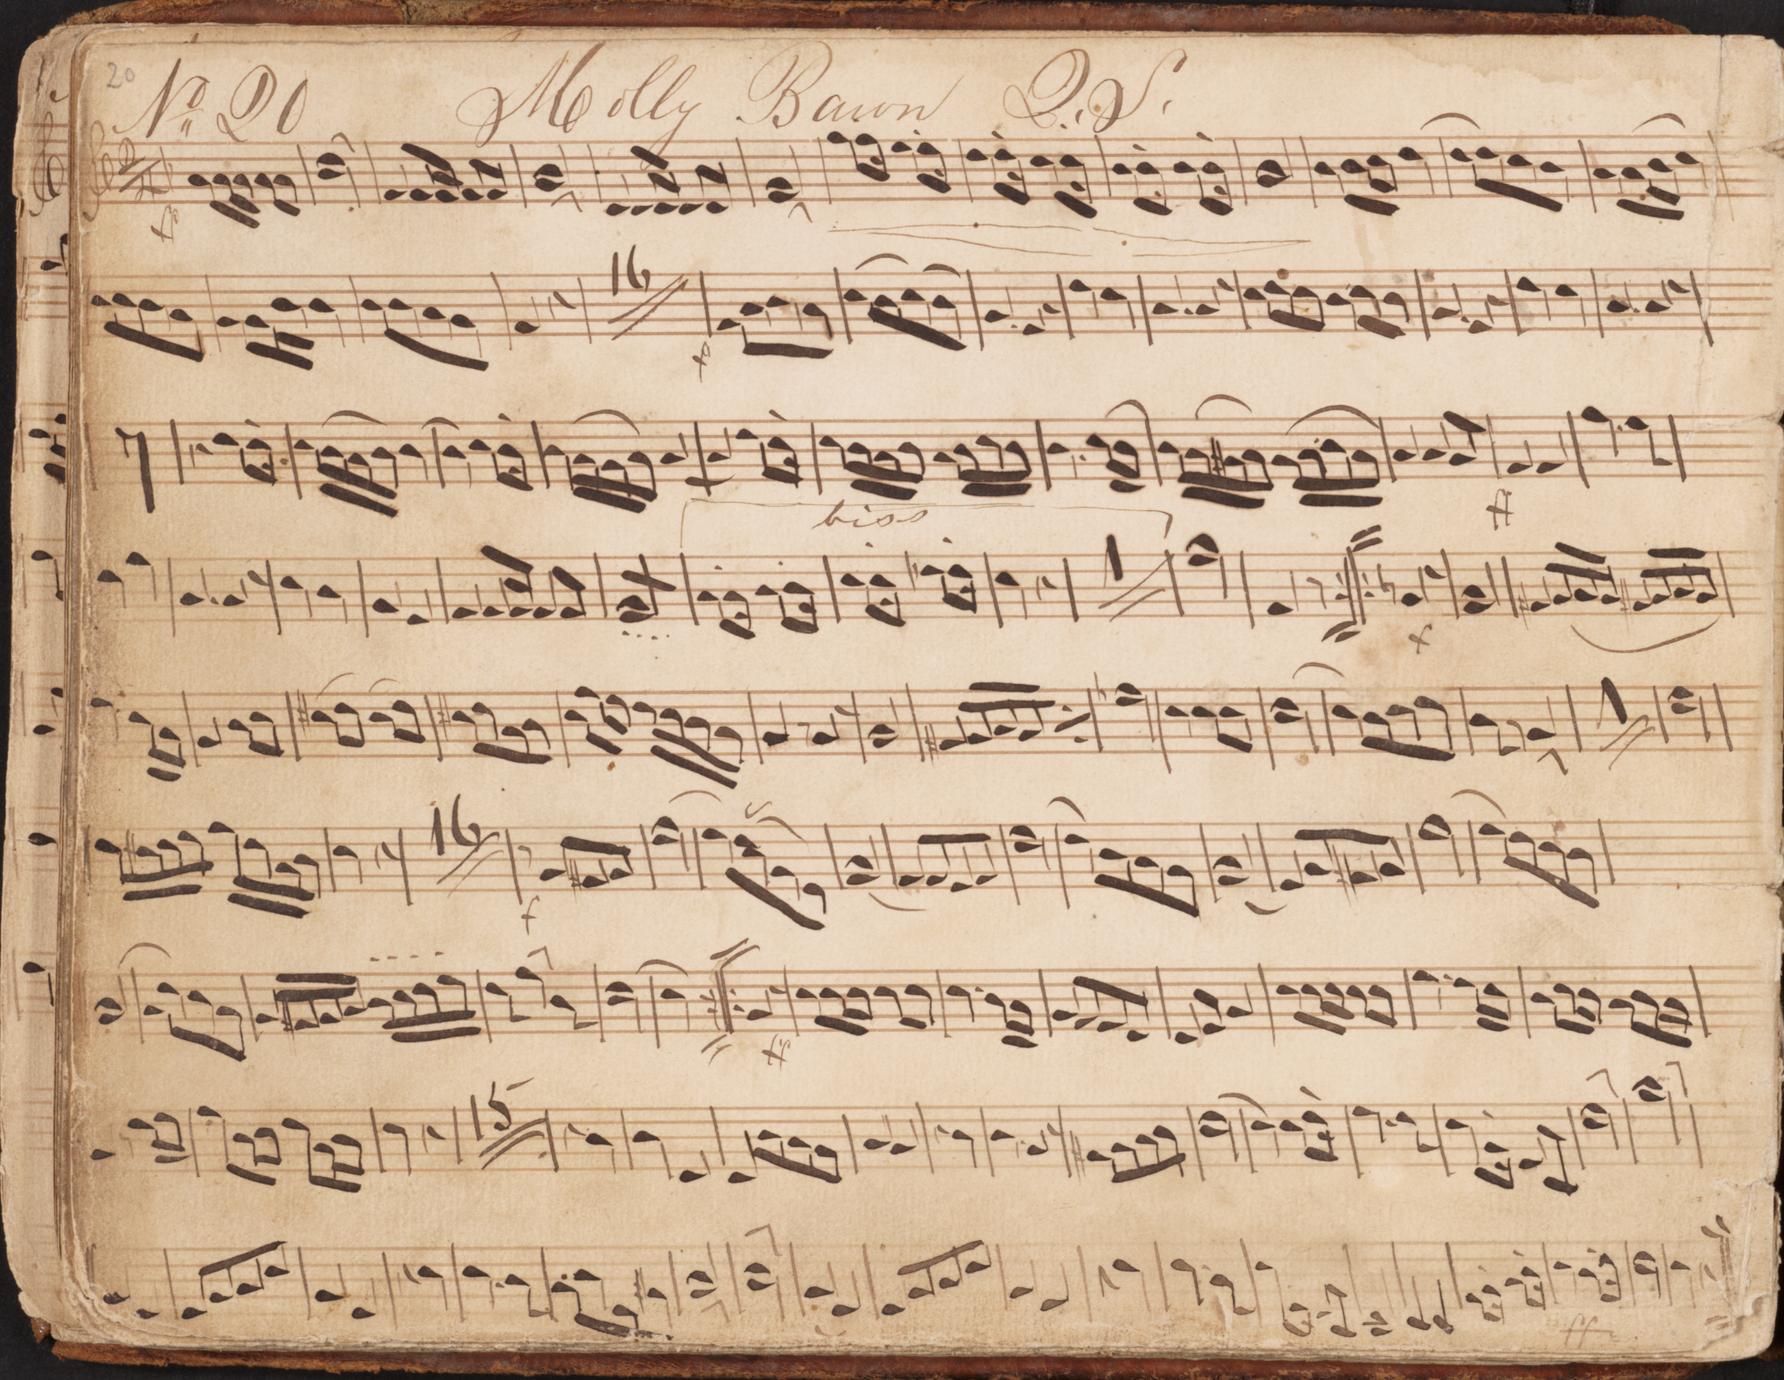 20
No. 20 Molly Bawn Q.S.
16
biss
ff
1
1
16
15
ff